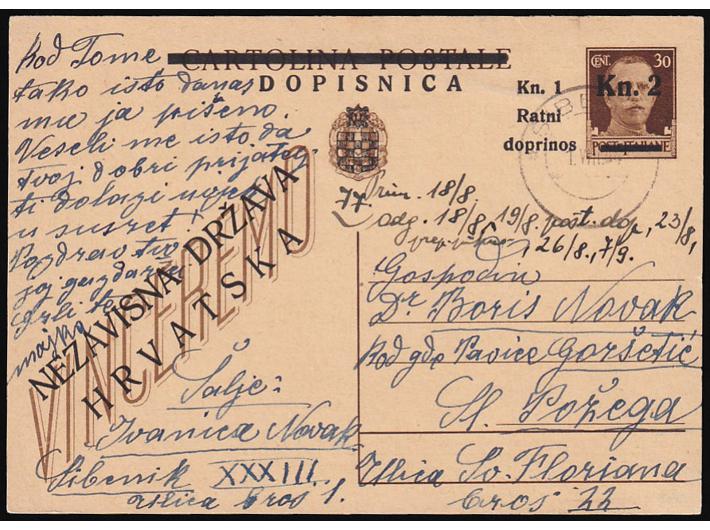 Kod Tome
tako isto danas
mu ja pišeno.
Veseli me isto da
tvoj dobri prijatelj
ti dolazi
u susret!
Pozdrav
gazdarica
grli te
majka
CARTOLINA POSTALE
DOPISNICA
Kn. 1
Ratni
doprinos
CENT. 30
Kn. 2
POSTE ITALIANE
VINCEREMO
NEZAVISNA DRŽAVA
HRVATSKA
Prim. 18/8.
odg. 18/8, 19/8. post. dop, 23/8,
26/8., 7/9.
Gospodin
Dr Boris Novak
Kod gđe Pavice Goršetić
Sl. Požega
Ulica Sv. Floriana
broj 22
Šalje:
Ivanica Novak
Šibenik XXXIII.
ulica broj 1.